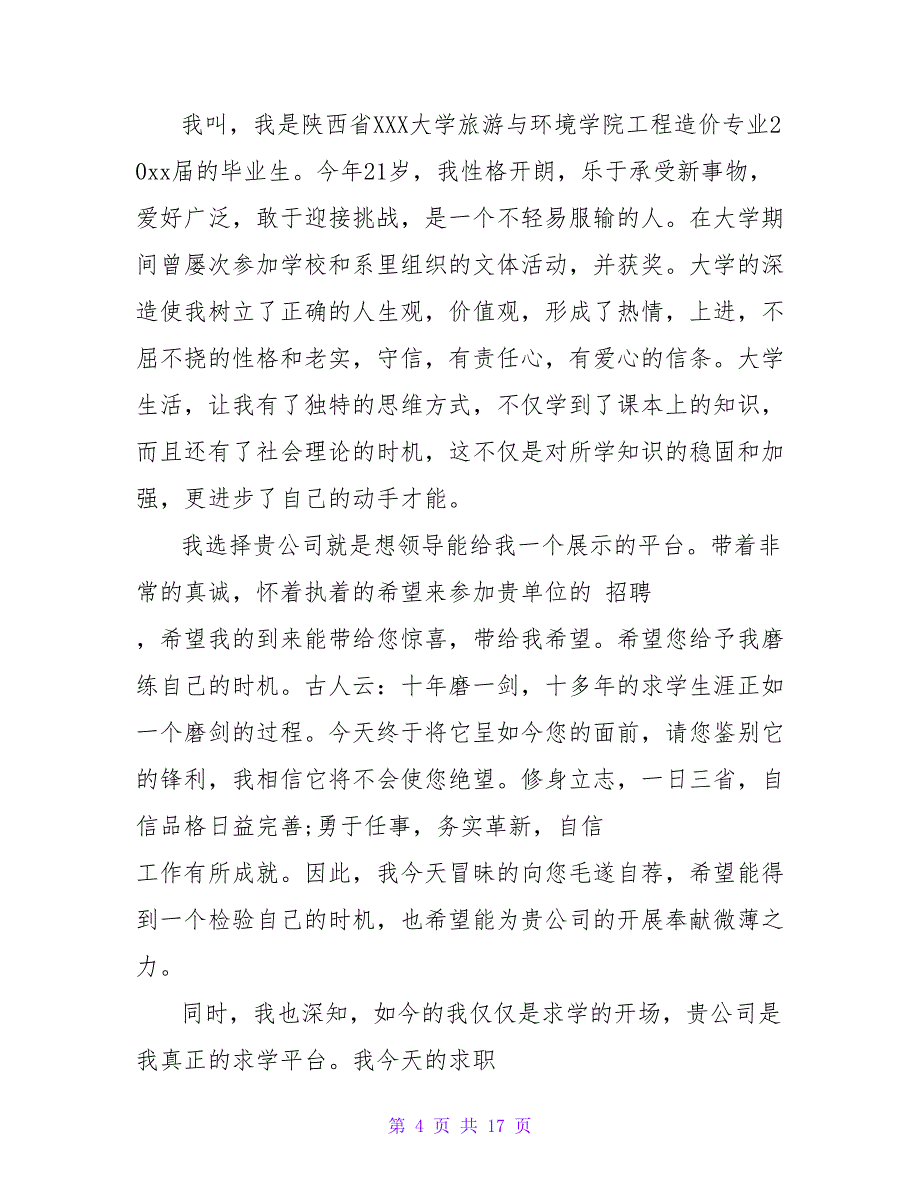 我叫，我是陕西省XXX大学旅游与环境学院工程造价专业2
0xx届的毕业生。今年21岁，我性格开朗，乐于承受新事物，
爱好广泛，敢于迎接挑战，是一个不轻易服输的人。在大学期
间曾屡次参加学校和系里组织的文体活动，并获奖。大学的深
造使我树立了正确的人生观，价值观，形成了热情，上进，不
屈不挠的性格和老实，守信，有责任心，有爱心的信条。大学
生活，让我有了独特的思维方式，不仅学到了课本上的知识，
而且还有了社会理论的时机，这不仅是对所学知识的稳固和加
强，更进步了自己的动手才能。
我选择贵公司就是想领导能给我一个展示的平台。带着非
常的真诚，怀着执着的希望来参加贵单位的 招聘
，希望我的到来能带给您惊喜，带给我希望。希望您给予我磨
练自己的时机。古人云：十年磨一剑，十多年的求学生涯正如
一个磨剑的过程。今天终于将它呈如今您的面前，请您鉴别它
的锋利，我相信它将不会使您绝望。修身立志，一日三省，自
信品格日益完善;勇于任事，务实革新，自信
工作有所成就。因此，我今天冒昧的向您毛遂自荐，希望能得
到一个检验自己的时机，也希望能为贵公司的开展奉献微薄之
力。
同时，我也深知，如今的我仅仅是求学的开场，贵公司是
我真正的求学平台。我今天的求职
第 4 页 共 17 页